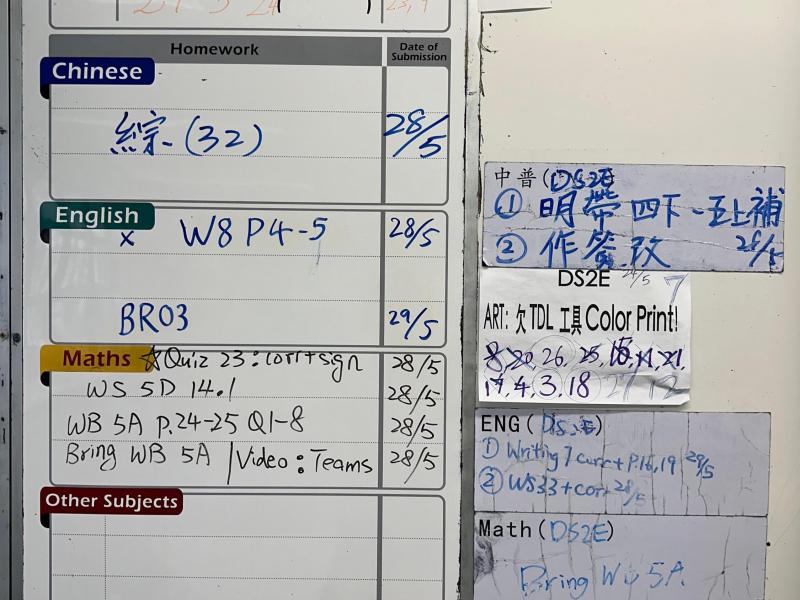 Homework Date of Submission
Chinese
綜 (32) 28/5
English
x W8 P4-5 28/5
BR03 29/5
Maths ☆Quiz 23: corr+sign 28/5
WS 5D 14.1 28/5
WB 5A P.24-25 Q1-8 28/5
Bring WB 5A | Video: Teams 28/5
Other Subjects
中普(DS2E)
① 明帶四下-五上補
② 作簽改 28/5
DS2E 24/5 7
ART: 欠 TDL 工具 Color Print!
8, 20, 26, 25, 15, 11, 21,
17, 4, 3, 18 27 12
ENG (DS2E)
① Writing 7 corr + P.16,19 28/5
② WS33 + corr 28/5
Math (DS2E)
Bring WB 5A